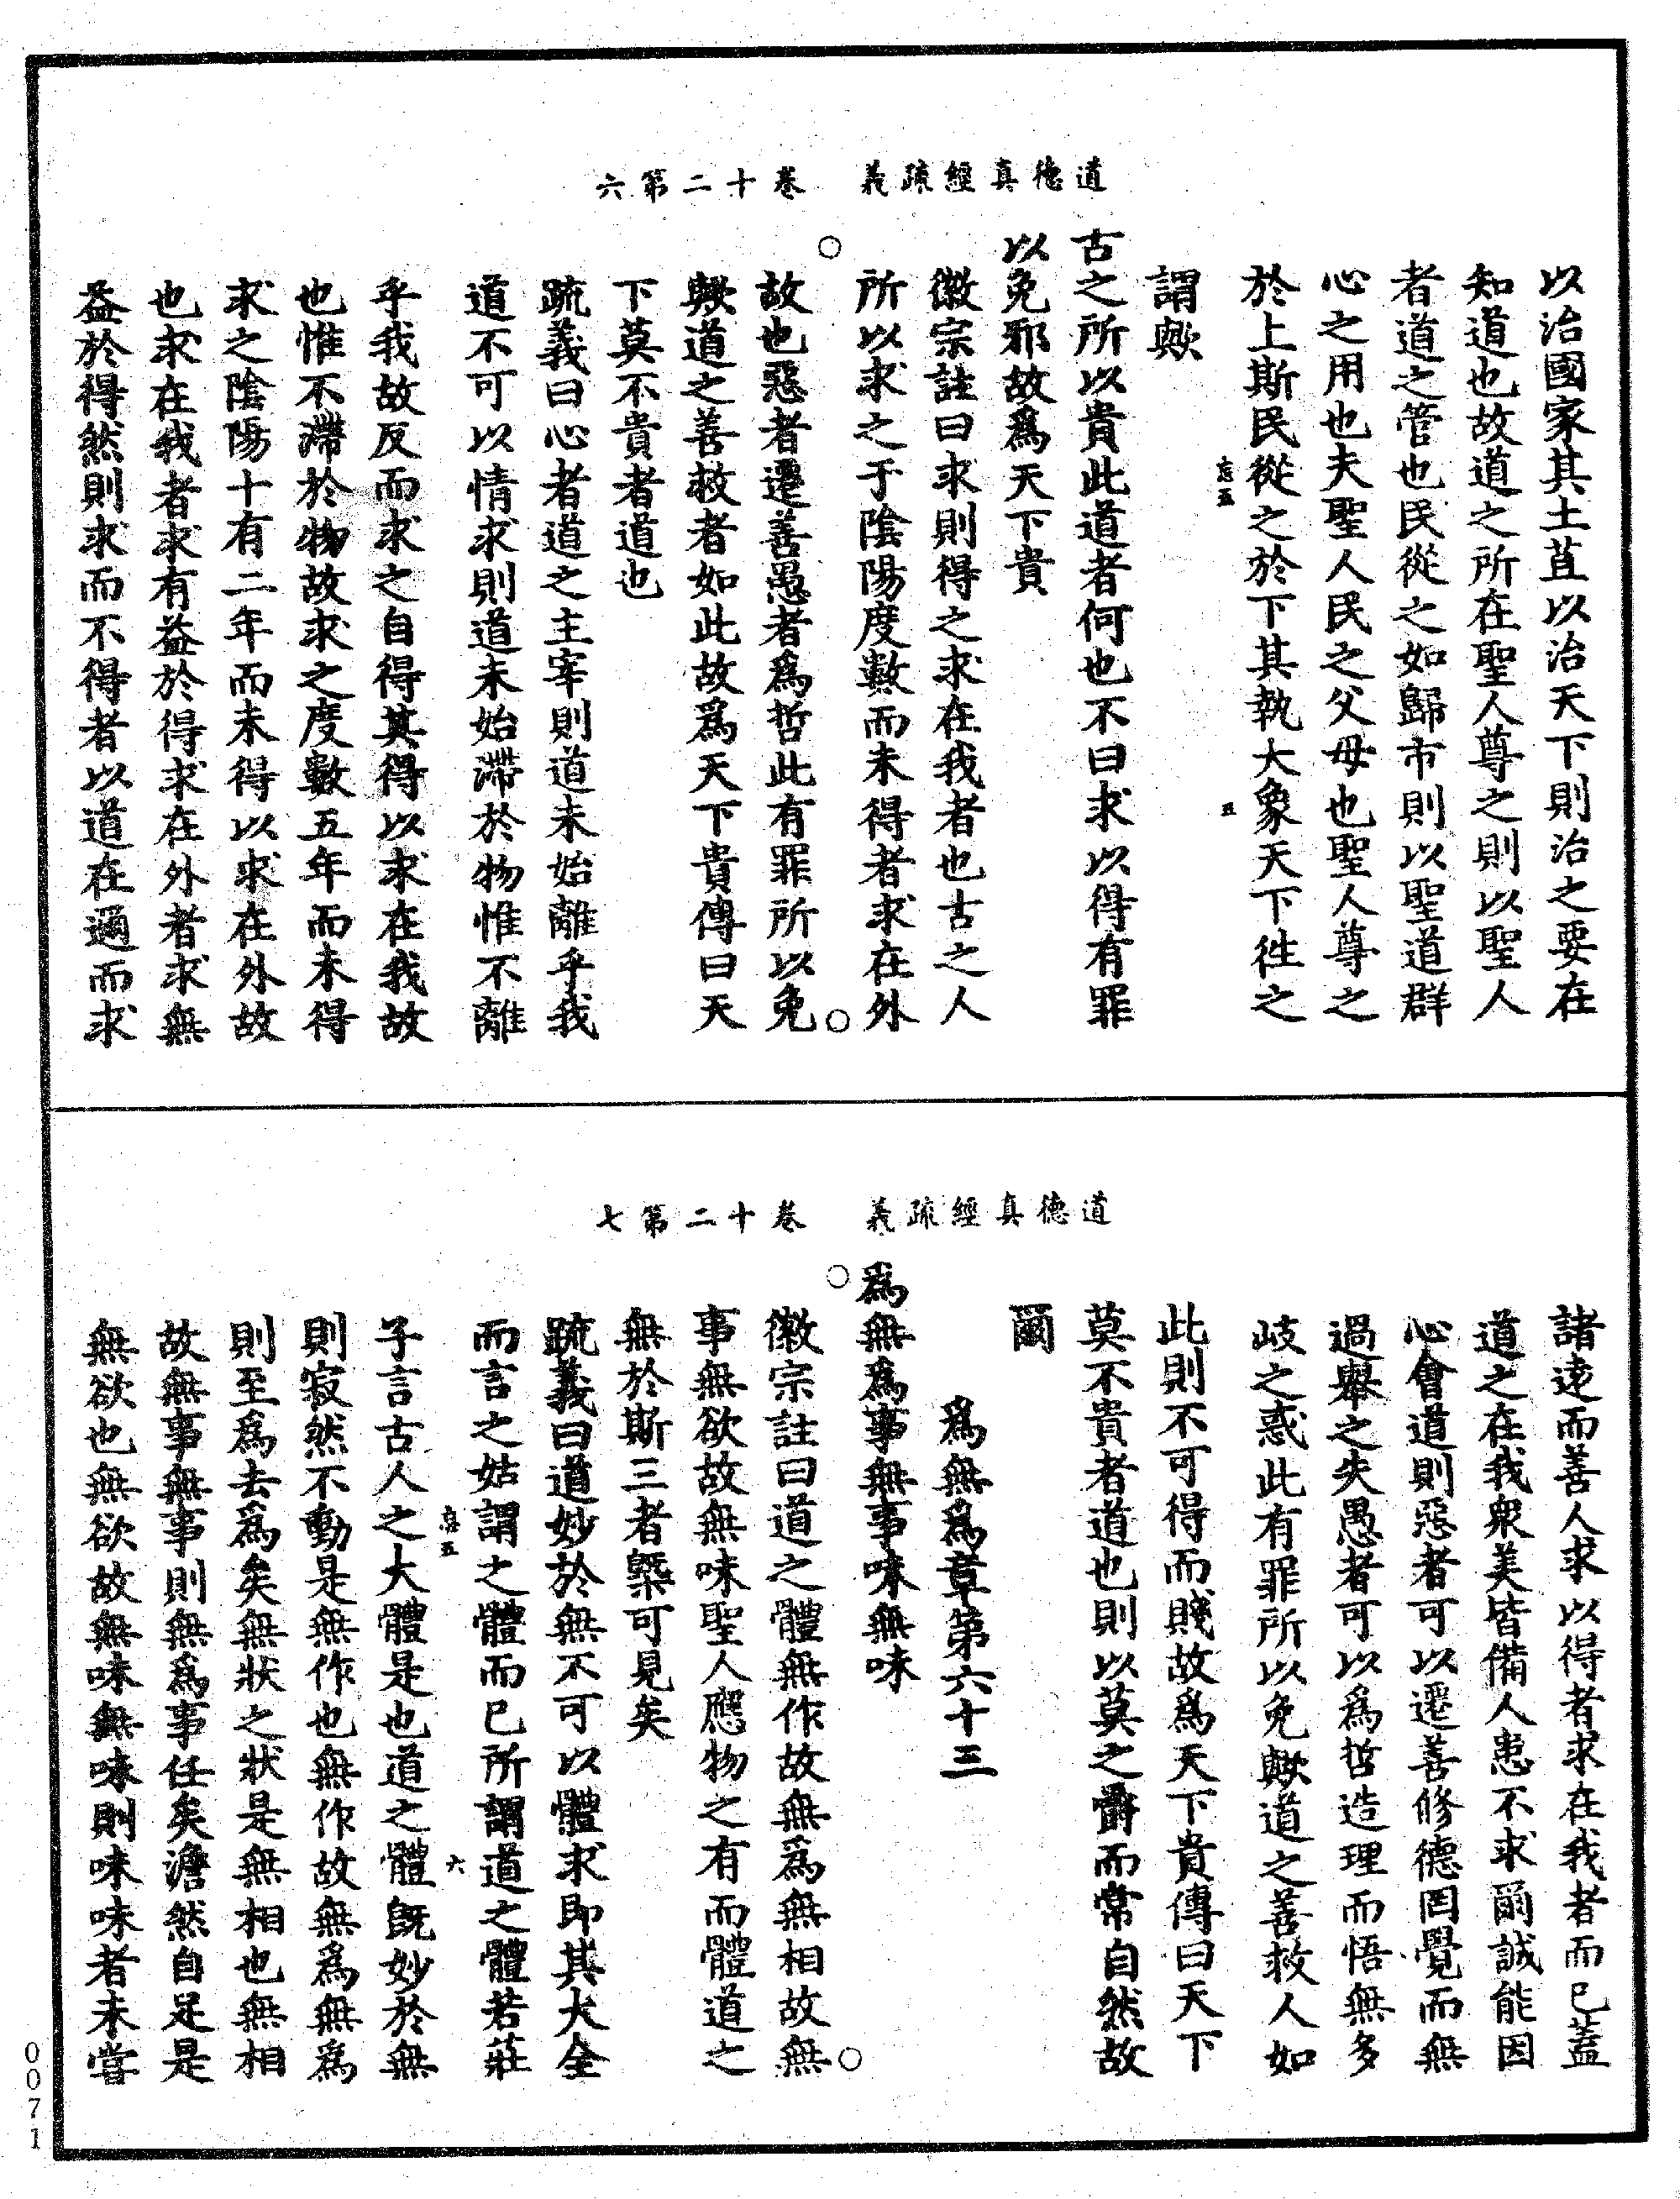 道德真經疏義　卷十二第六
以治國家其土苴以治天下則治之要在
知道也故道之所在聖人尊之則以聖人
者道之管也民從之如歸市則以聖道群
心之用也夫聖人民之父母也聖人尊之
於上斯民從之於下其執大象天下徃之
五
謂歟
古之所以貴此道者何也不曰求以得有罪
以免邪故爲天下貴
徽宗註曰求則得之求在我者也古之人
所以求之于陰陽度數而未得者求在外
故也惡者遷善愚者爲哲此有罪所以免
歟道之善救者如此故爲天下貴傳曰天
下莫不貴者道也
疏義曰心者道之主宰則道未始離乎我
道不可以情求則道未始滯於物惟不離
乎我故反而求之自得其得以求在我故
也惟不滯於物故求之度數五年而未得
求之陰陽十有二年而未得以求在外故
也求在我者求有益於得求在外者求無
益於得然則求而不得者以道在邇而求
道德真經疏義　卷十二第七
諸逺而善人求以得者求在我者而已蓋
道之在我衆美皆備人患不求爾誠能因
心會道則惡者可以遷善修德罔覺而無
過舉之失愚者可以爲哲造理而悟無多
岐之惑此有罪所以免歟道之善救人如
此則不可得而賤故爲天下貴傳曰天下
莫不貴者道也則以莫之爵而常自然故
爾
爲無爲章第六十三
爲無爲事無事味無味
徽宗註曰道之體無作故無爲無相故無
事無欲故無味聖人應物之有而體道之
無於斯三者槩可見矣
疏義曰道妙於無不可以體求即其大全
而言之姑謂之體而已所謂道之體若莊
六
子言古人之大體是也道之體旣妙於無
則寂然不動是無作也無作故無爲無爲
則至爲去爲矣無狀之狀是無相也無相
故無事無事則無爲事任矣澹然自足是
無欲也無欲故無味無味則味味者未嘗
0071